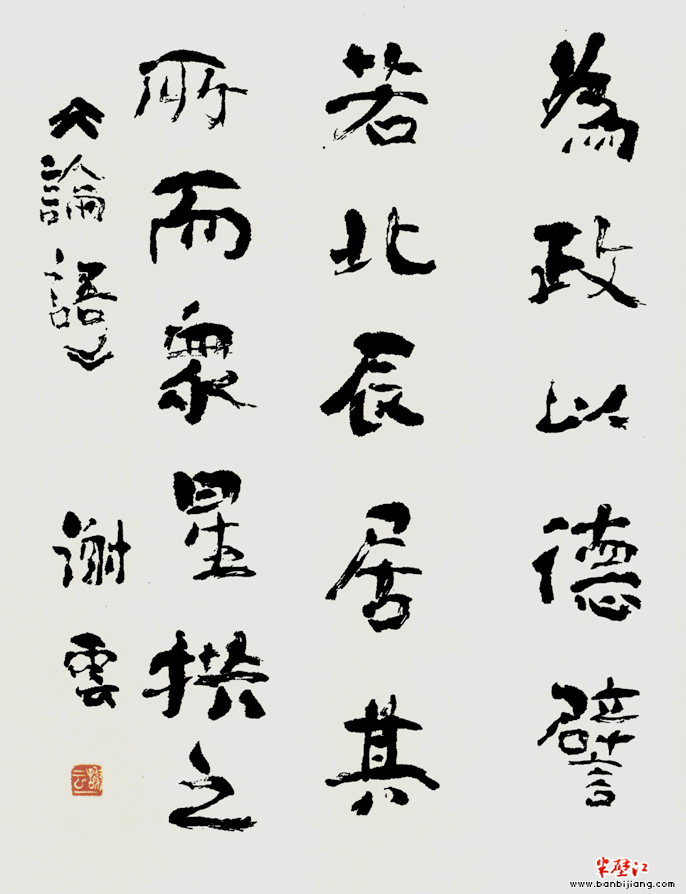 為政以德譬
若北辰居其
所而衆星拱之
《論語》 謝雲
謝云
半壁江
www.banbijiang.com